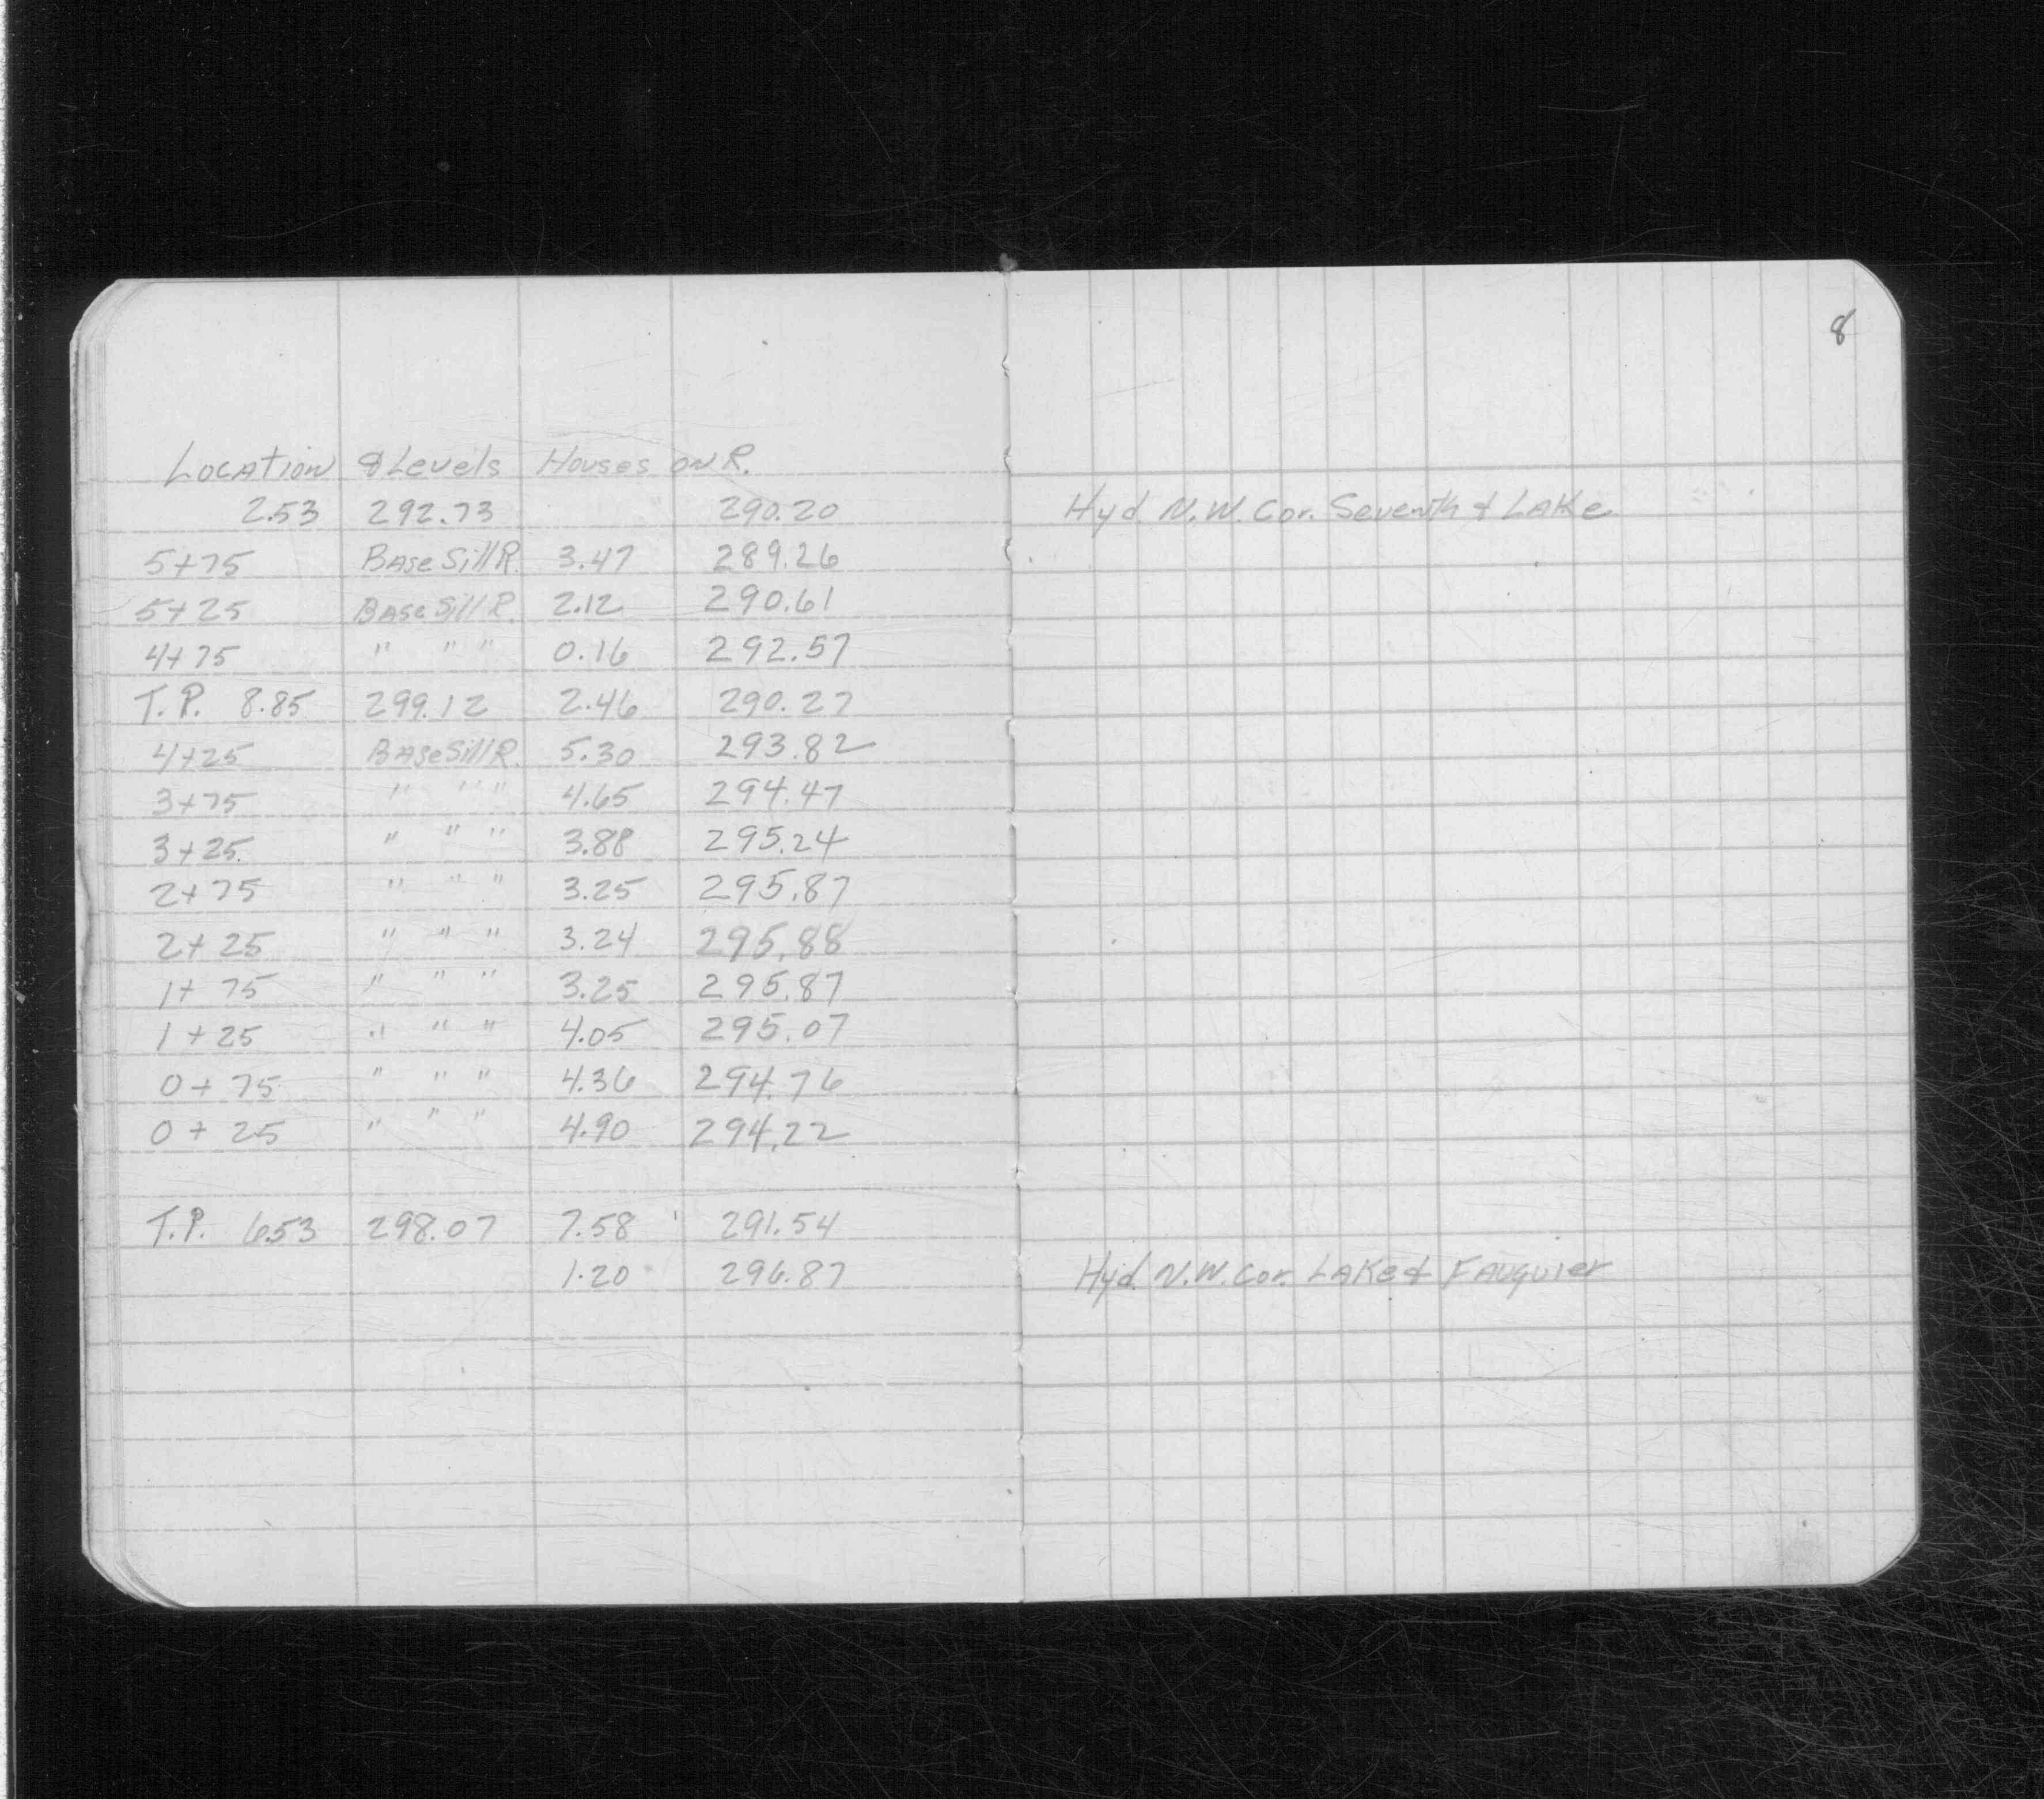 8
Location & Levels Houses on R.
2.53 292.73 290.20 Hyd. N.W. Cor. Seventh & Lake
5+75 Base Sill R. 3.47 289.26
5+25 Base Sill R. 2.12 290.61
4+75 " " " 0.16 292.57
T.P. 8.85 299.12 2.46 290.27
4+25 Base Sill R. 5.30 293.82
3+75 " " " 4.65 294.47
3+25 " " " 3.88 295.24
2+75 " " " 3.25 295.87
2+25 " " " 3.24 295.88
1+75 " " " 3.25 295.87
1+25 " " " 4.05 295.07
0+75 " " " 4.36 294.76
0+25 " " " 4.90 294.22
T.P. 6.53 298.07 7.58 291.54
1.20 296.87 Hyd. N.W. Cor. Lake & Fauquier